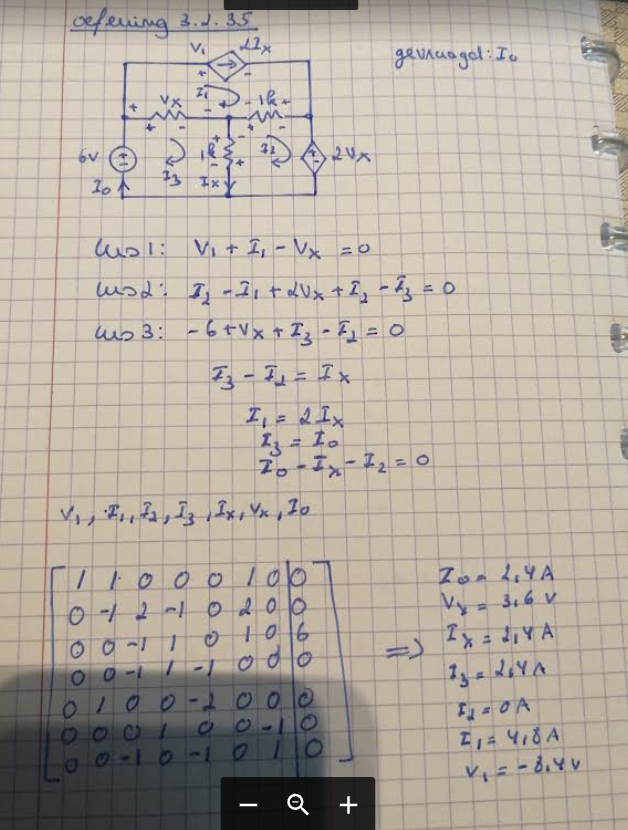 oefening 3.2.35
gevraagd: I₀
V₁
2Iₓ
+ -
I₁
+ Vₓ - + - 1k +
+ - + -
6V
1k
I₂
2Vₓ
I₃
I₀
Iₓ
lus 1: V₁ + I₁ - Vₓ = 0
lus 2: I₂ - I₁ + 2Vₓ + I₂ - I₃ = 0
lus 3: -6 + Vₓ + I₃ - I₂ = 0
I₃ - I₂ = Iₓ
I₁ = 2Iₓ
I₃ = I₀
I₀ - Iₓ - I₂ = 0
V₁, I₁, I₂, I₃, Iₓ, Vₓ, I₀
1 1 0 0 0 1 0 0
0 -1 2 -1 0 2 0 0
0 0 -1 1 0 1 0 6
0 0 -1 1 -1 0 0 0
0 1 0 0 -2 0 0 0
0 0 0 1 0 0 -1 0
0 0 -1 0 -1 0 1 0
=>
I₀ = 2,4 A
Vₓ = 3,6 V
Iₓ = 2,4 A
I₃ = 2,4 A
I₂ = 0 A
I₁ = 4,8 A
V₁ = -8,4 V